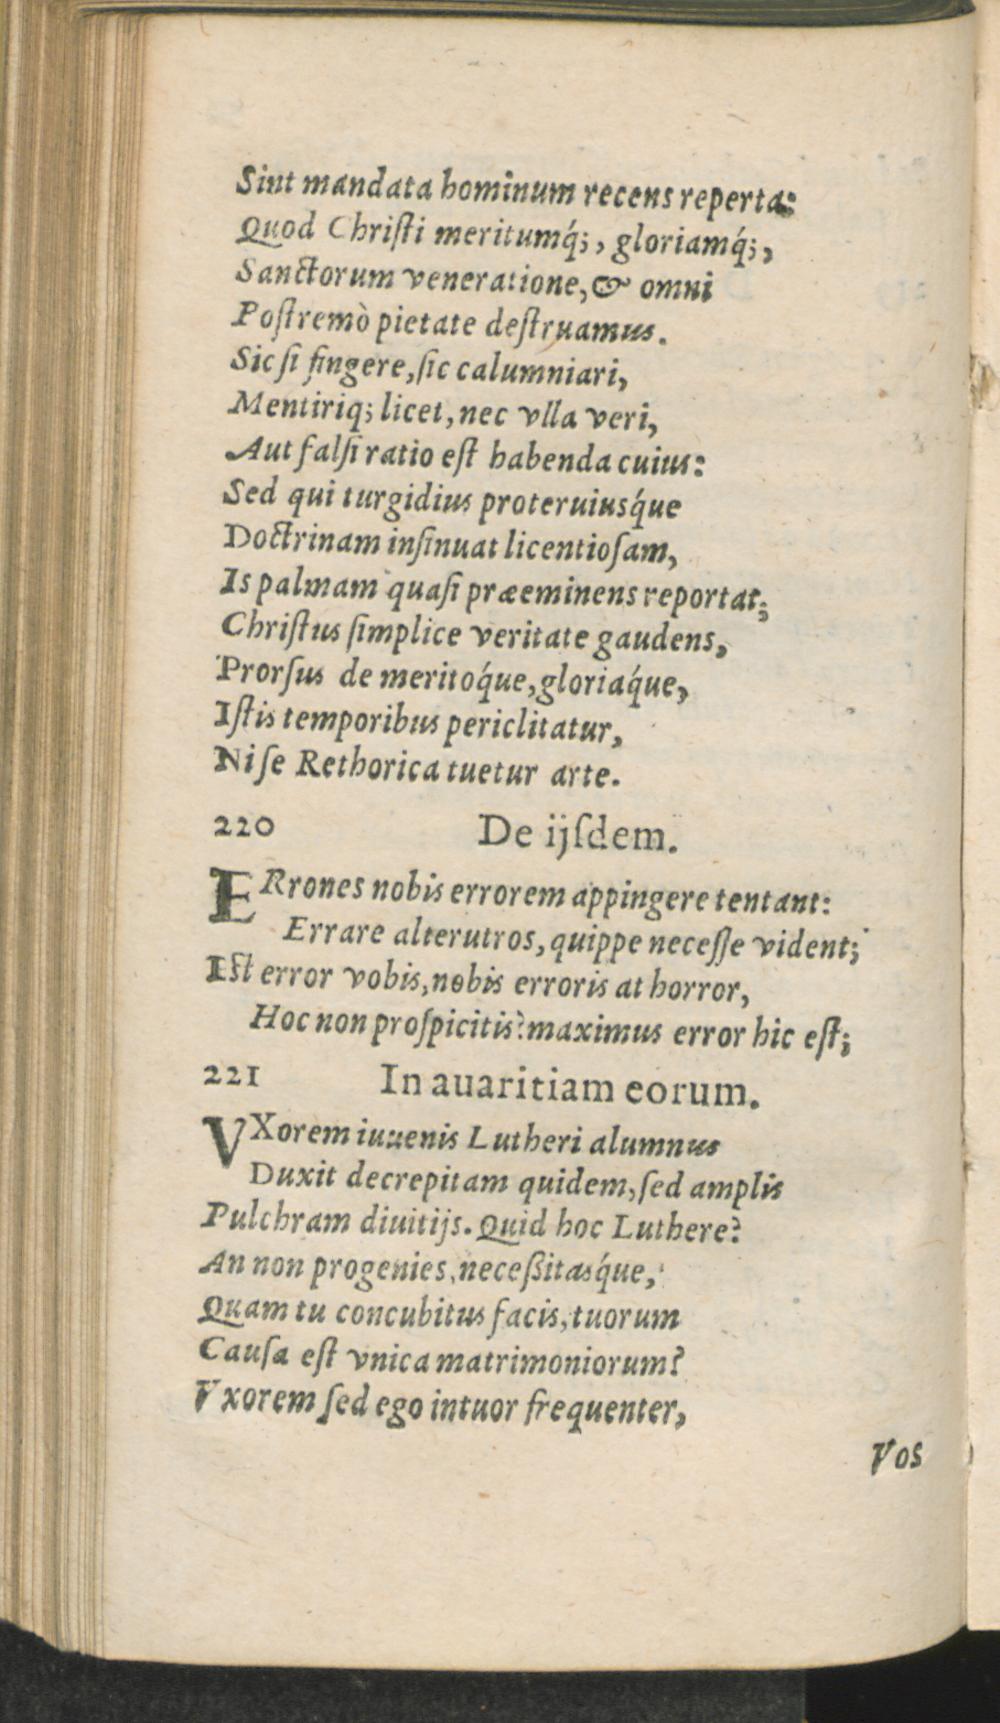 Sint mandata hominum recens reperta:
Quod Chriſti meritumq́;, gloriamq́;,
Sanctorum veneratione, & omni
Poſtremò pietate deſtruamus.
Sic ſi fingere, ſic calumniari,
Mentiriq; licet, nec vlla veri,
Aut falſi ratio eſt habenda cuius:
Sed qui turgidius proteruiusq́ue
Doctrinam inſinuat licentioſam,
Is palmam quaſi præeminens reportat;
Chriſtus ſimplice veritate gaudens,
Prorſus de meritoq́ue, gloriaq́ue,
Iſtis temporibus periclitatur,
Ni ſe Rethorica tuetur arte.
220 De ijſdem.
ERrones nobis errorem appingere tentant:
Errare alterutros, quippe neceſſe vident;
Eſt error vobis, nobis erroris at horror,
Hoc non proſpicitis? maximus error hic eſt;
221 In auaritiam eorum.
VXorem iuuenis Lutheri alumnus
Duxit decrepitam quidem, ſed amplis
Pulchram diuitijs. Quid hoc Luthere?
An non progenies, neceßitasq́ue,
Quam tu concubitus facis, tuorum
Cauſa eſt vnica matrimoniorum?
Vxorem ſed ego intuor frequenter,
Vos